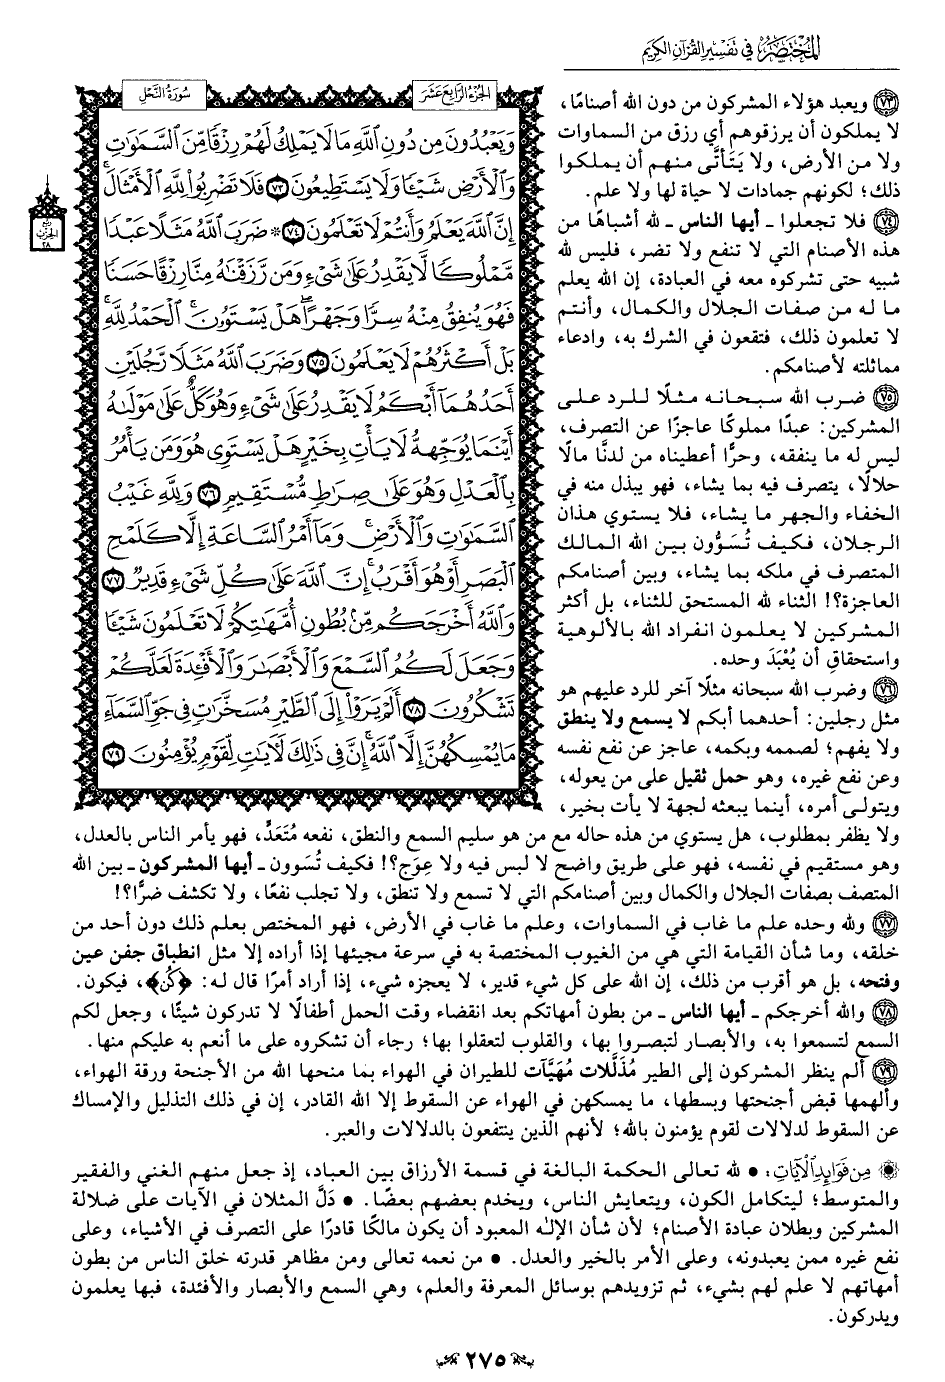 المختصر في تفسير القرآن الكريم
سورة النحل
الجزء الرابع عشر
وَيَعْبُدُونَ مِن دُونِ ٱللَّهِ مَا لَا يَمْلِكُ لَهُمْ رِزْقًا مِّنَ ٱلسَّمَٰوَٰتِ
وَٱلْأَرْضِ شَيْـًٔا وَلَا يَسْتَطِيعُونَ ٧٣ فَلَا تَضْرِبُوا۟ لِلَّهِ ٱلْأَمْثَالَ ۚ
إِنَّ ٱللَّهَ يَعْلَمُ وَأَنتُمْ لَا تَعْلَمُونَ ٧٤ ۞ ضَرَبَ ٱللَّهُ مَثَلًا عَبْدًا
مَّمْلُوكًا لَّا يَقْدِرُ عَلَىٰ شَىْءٍ وَمَن رَّزَقْنَٰهُ مِنَّا رِزْقًا حَسَنًا
فَهُوَ يُنفِقُ مِنْهُ سِرًّا وَجَهْرًا ۖ هَلْ يَسْتَوُۥنَ ۚ ٱلْحَمْدُ لِلَّهِ ۚ
بَلْ أَكْثَرُهُمْ لَا يَعْلَمُونَ ٧٥ وَضَرَبَ ٱللَّهُ مَثَلًا رَّجُلَيْنِ
أَحَدُهُمَآ أَبْكَمُ لَا يَقْدِرُ عَلَىٰ شَىْءٍ وَهُوَ كَلٌّ عَلَىٰ مَوْلَىٰهُ
أَيْنَمَا يُوَجِّههُّ لَا يَأْتِ بِخَيْرٍ ۖ هَلْ يَسْتَوِى هُوَ وَمَن يَأْمُرُ
بِٱلْعَدْلِ ۙ وَهُوَ عَلَىٰ صِرَٰطٍ مُّسْتَقِيمٍ ٧٦ وَلِلَّهِ غَيْبُ
ٱلسَّمَٰوَٰتِ وَٱلْأَرْضِ ۚ وَمَآ أَمْرُ ٱلسَّاعَةِ إِلَّا كَلَمْحِ
ٱلْبَصَرِ أَوْ هُوَ أَقْرَبُ ۚ إِنَّ ٱللَّهَ عَلَىٰ كُلِّ شَىْءٍ قَدِيرٌ ٧٧
وَٱللَّهُ أَخْرَجَكُم مِّنۢ بُطُونِ أُمَّهَٰتِكُمْ لَا تَعْلَمُونَ شَيْـًٔا
وَجَعَلَ لَكُمُ ٱلسَّمْعَ وَٱلْأَبْصَٰرَ وَٱلْأَفْـِٔدَةَ ۙ لَعَلَّكُمْ
تَشْكُرُونَ ٧٨ أَلَمْ يَرَوْا۟ إِلَى ٱلطَّيْرِ مُسَخَّرَٰتٍ فِى جَوِّ ٱلسَّمَآءِ
مَا يُمْسِكُهُنَّ إِلَّا ٱللَّهُ ۗ إِنَّ فِى ذَٰلِكَ لَءَايَٰتٍ لِّقَوْمٍ يُؤْمِنُونَ ٧٩
ربع
الحزب
٢٨
٧٣ ويعبد هؤلاء المشركون من دون الله أصنامًا،
لا يملكون أن يرزقوهم أي رزق من السماوات
ولا من الأرض، ولا يَتَأتَّى منهم أن يملكوا
ذلك؛ لكونهم جمادات لا حياة لها ولا علم.
٧٤ فلا تجعلوا ـ أيها الناس ـ لله أشباهًا من
هذه الأصنام التي لا تنفع ولا تضر، فليس لله
شبيه حتى تشركوه معه في العبادة، إن الله يعلم
ما له من صفات الجلال والكمال، وأنتم
لا تعلمون ذلك، فتقعون في الشرك به، وادعاء
مماثلته لأصنامكم.
٧٥ ضرب الله سبحانه مثلًا للرد على
المشركين: عبدًا مملوكًا عاجزًا عن التصرف،
ليس له ما ينفقه، وحرًّا أعطيناه من لدنَّا مالًا
حلالًا، يتصرف فيه بما يشاء، فهو يبذل منه في
الخفاء والجهر ما يشاء، فلا يستوي هذان
الرجلان، فكيف تُسَوُّون بين الله المالك
المتصرف في ملكه بما يشاء، وبين أصنامكم
العاجزة؟! الثناء لله المستحق للثناء، بل أكثر
المشركين لا يعلمون انفراد الله بالألوهية
واستحقاق أن يُعْبَدَ وحده.
٧٦ وضرب الله سبحانه مثلًا آخر للرد عليهم هو
مثل رجلين: أحدهما أبكم لا يسمع ولا ينطق
ولا يفهم؛ لصممه وبكمه، عاجز عن نفع نفسه
وعن نفع غيره، وهو حمل ثقيل على من يعوله،
ويتولى أمره، أينما يبعثه لجهة لا يأت بخير،
ولا يظفر بمطلوب، هل يستوي من هذه حاله مع من هو سليم السمع والنطق، نفعه مُتَعَدٍّ، فهو يأمر الناس بالعدل،
وهو مستقيم في نفسه، فهو على طريق واضح لا لبس فيه ولا عِوَج؟! فكيف تُسَوون ـ أيها المشركون ـ بين الله
المتصف بصفات الجلال والكمال وبين أصنامكم التي لا تسمع ولا تنطق، ولا تجلب نفعًا، ولا تكشف ضرًّا؟!
٧٧ ولله وحده علم ما غاب في السماوات، وعلم ما غاب في الأرض، فهو المختص بعلم ذلك دون أحد من
خلقه، وما شأن القيامة التي هي من الغيوب المختصة به في سرعة مجيئها إذا أراده إلا مثل انطباق جفن عين
وفتحه، بل هو أقرب من ذلك، إن الله على كل شيء قدير، لا يعجزه شيء، إذا أراد أمرًا قال له: ﴿كُن﴾، فيكون.
٧٨ والله أخرجكم ـ أيها الناس ـ من بطون أمهاتكم بعد انقضاء وقت الحمل أطفالًا لا تدركون شيئًا، وجعل لكم
السمع لتسمعوا به، والأبصار لتبصروا بها، والقلوب لتعقلوا بها؛ رجاء أن تشكروه على ما أنعم به عليكم منها.
٧٩ ألم ينظر المشركون إلى الطير مُذَلَّلات مُهَيَّآت للطيران في الهواء بما منحها الله من الأجنحة ورقة الهواء،
وألهمها قبض أجنحتها وبسطها، ما يمسكهن في الهواء عن السقوط إلا الله القادر، إن في ذلك التذليل والإمساك
عن السقوط لدلالات لقوم يؤمنون بالله؛ لأنهم الذين ينتفعون بالدلالات والعبر.
من فوائد الآيات: • لله تعالى الحكمة البالغة في قسمة الأرزاق بين العباد، إذ جعل منهم الغني والفقير
والمتوسط؛ ليتكامل الكون، ويتعايش الناس، ويخدم بعضهم بعضًا. • دَلَّ المثلان في الآيات على ضلالة
المشركين وبطلان عبادة الأصنام؛ لأن شأن الإلٰه المعبود أن يكون مالكًا قادرًا على التصرف في الأشياء، وعلى
نفع غيره ممن يعبدونه، وعلى الأمر بالخير والعدل. • من نعمه تعالى ومن مظاهر قدرته خلق الناس من بطون
أمهاتهم لا علم لهم بشيء، ثم تزويدهم بوسائل المعرفة والعلم، وهي السمع والأبصار والأفئدة، فبها يعلمون
ويدركون.
٢٧٥